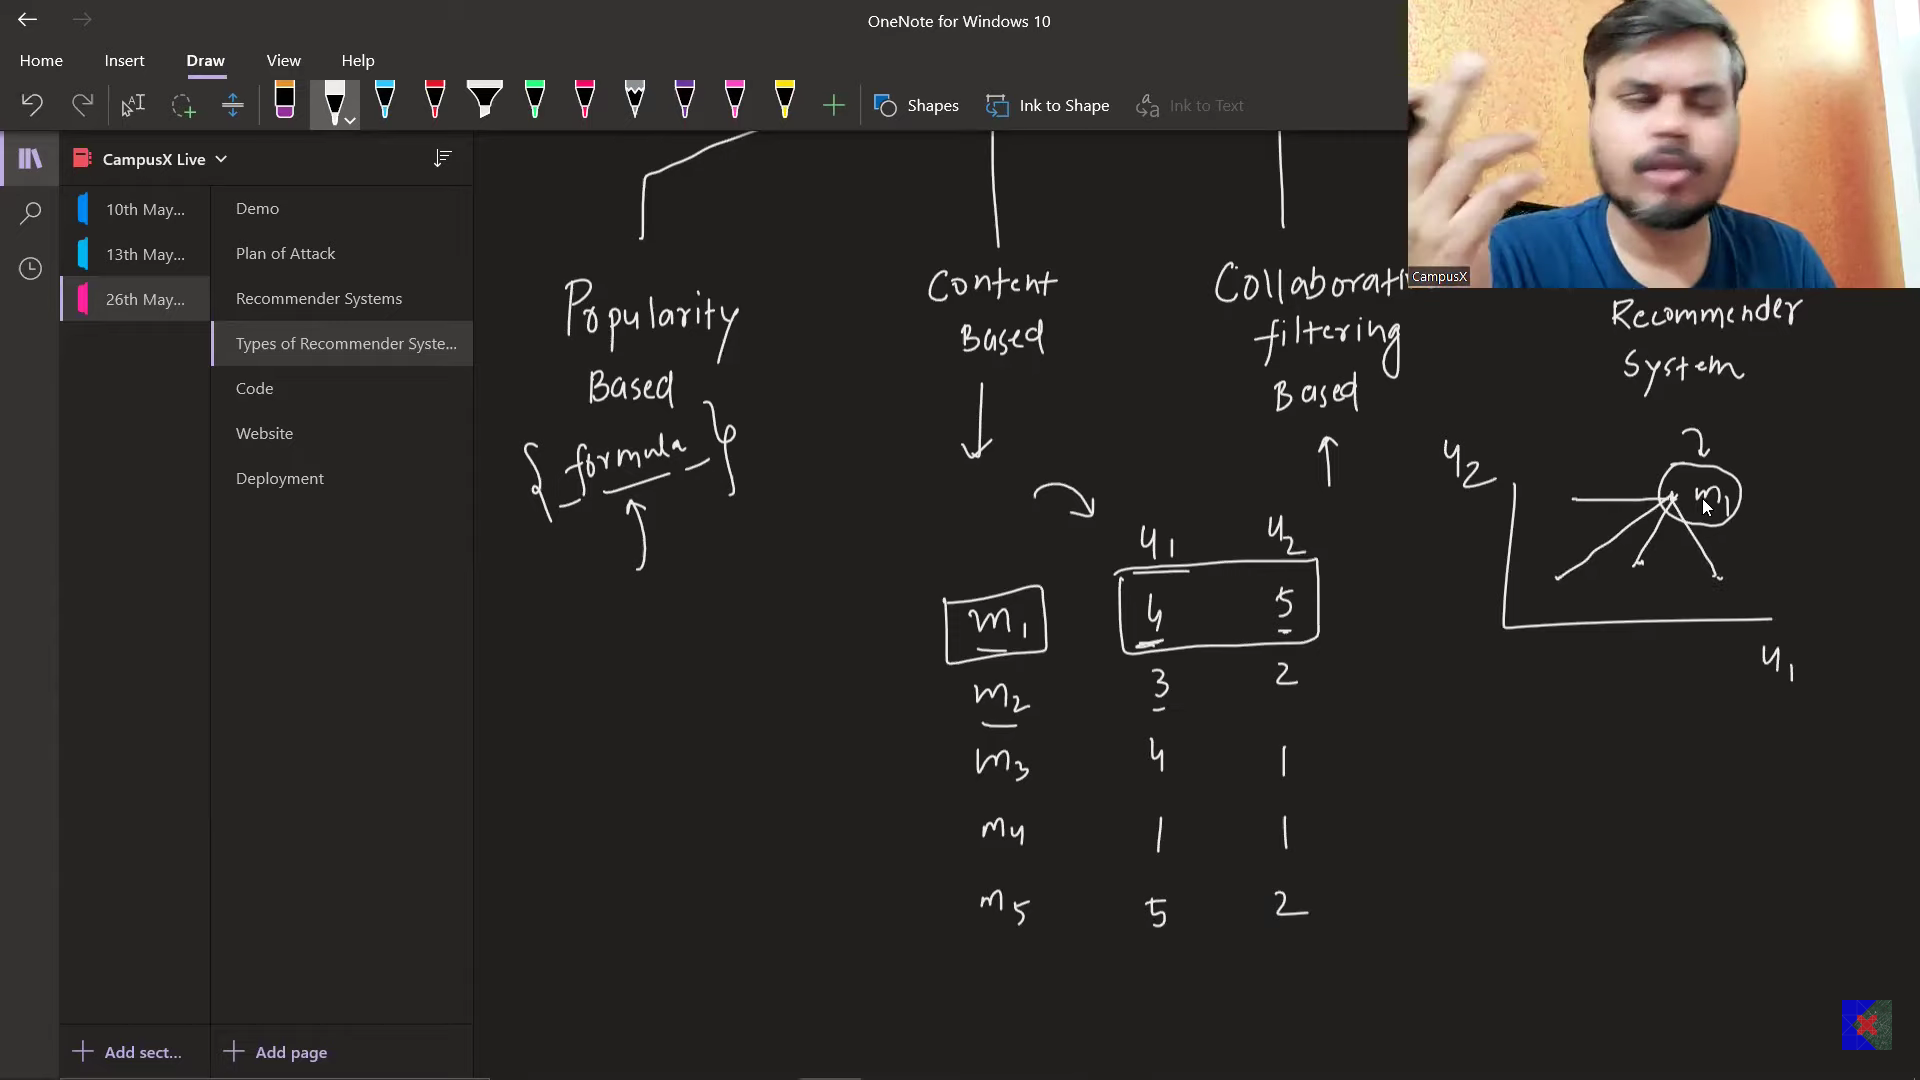 OneNote for Windows 10
Home Insert Draw View Help
Shapes Ink to Shape Ink to Text
CampusX Live
10th May...
13th May...
26th May...
Demo
Plan of Attack
Recommender Systems
Types of Recommender Syste...
Code
Website
Deployment
Add sect...
Add page
CampusX
Popularity
Based
{ formula }
Content
Based
Collaborati
filtering
Based
Recommender
System
u1 u2
m1 4 5
m2 3 2
m3 4 1
m4 1 1
m5 5 2
u2
m1
u1